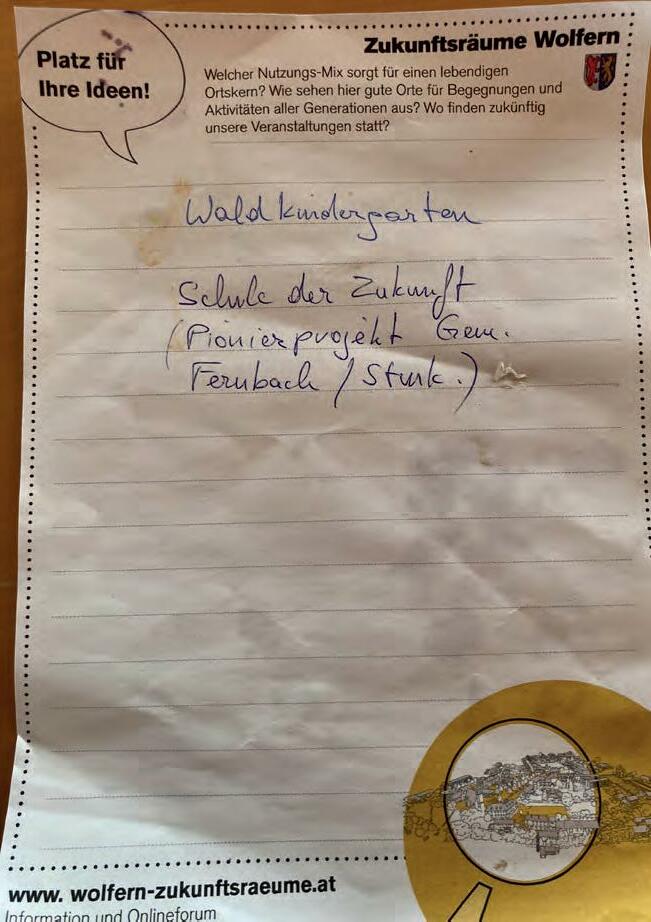 Platz für
Ihre Ideen!
Zukunftsräume Wolfern
Welcher Nutzungs-Mix sorgt für einen lebendigen
Ortskern? Wie sehen hier gute Orte für Begegnungen und
Aktivitäten aller Generationen aus? Wo finden zukünftig
unsere Veranstaltungen statt?
Waldkindergarten
Schule der Zukunft
(Pionierprojekt Gem.
Fernbach / Stmk.)
www. wolfern-zukunftsraeume.at
Information und Onlineforum